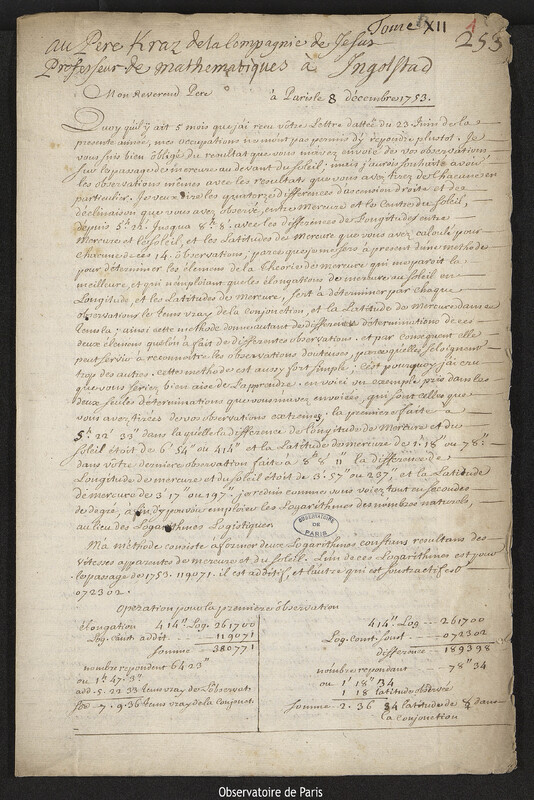 Tome XII 1
au Pere Kraz de la Compagnie de Jesus 253
Professeur de mathematiques à Ingolstad
Mon Reverend Pere à Paris le 8 décembre 1753.
Quoy qu'il y ait 5 mois que j'ai recu vôtre Lettre dattée du 23 Juin de la
presente année, mes occupations ne m'ont pas permis d'y repondre plustot. Je
vous suis bien obligé du resultat que vous m'avez envoié de vos observations
sur le passage de mercure au devant du soleil; mais j'aurois souhaité avoir
les observations mêmes avec les resultats que vous avez tirez de chacune en
particulier. Je veux dire les quatorze differences d'ascension droite et de
déclinaison que vous avez observé, entre Mercure et le Centre du soleil,
depuis 5h. 22' jusqu'a 8h. 8'. avec les differences de Longitudes entre
Mercure et le soleil, et les Latitudes de Mercure que vous avez calculé pour
chacune de ces 14. observations; parceque je me sers à present d'une methode
pour déterminer les élemens de la Theorie de mercure qui me paroit la
meilleure, et qui n'emploiant que les élongations de mercure au soleil en
Longitude, et les Latitudes de Mercure, sert à déterminer par chaque
observations le tems vray de la conjonction, et la Latitude de Mercure dans ce
tems la; ainsi cette methode donne autant de differentes déterminations de ces
deux élemens que l'on à fait de differentes observations. et par consequent elle
peut servir à reconnoitre les observations douteuses, parce qu'elles s'éloignent
trop des autres. cette methode est aussy fort simple; c'est pourquoy j'ai cru
que vous seriez bien aise de l'apprendre. en voici un exemple pris dans les
deux seules déterminations que vous m'avez envoiées, qui sont celles que
vous avez tirées de vos observations extremes. la premiere faite à
5h. 22' 33" dans laquelle la difference de longitude de Mercure et du
soleil étoit de 6' 54" ou 414" et la Latitude de mercure de 1' 18" ou 78".
dans vôtre derniere observation faite à 8h 8' 11" la difference de
Longitude de mercure et du soleil étoit de 3'. 57" ou 237", et la Latitude
de mercure de 3' 17" ou 197". je reduis comme vous voiez tout en secondes
de degre, afin d'y pouvoir emploier les Logarithmes des nombres naturels,
au lieu des Logarithmes Logistiques
OBSERVATOIRE DE PARIS
Ma méthode consiste a former deux Logarithmes constans resultans des
vitesses apparentes de mercure et du soleil. L'un de ces Logarithmes est pour
le passage de 1753. 119071. il est additif, et l'autre qui est soustractif est
072302.
Operation pour la premiere observation
élongation 414". Log. 261700 414". Log --- 261700
Log. Const. addit. --- 119071 Log. Const. soust --- 072302
somme --- 380771 difference --- 189398
nombre repondent 6423" nombre repondant --- 78" 34
ou 1h 47' 3" ou 1' 18" 34
add. 5. 22 33 tems vray de l'observat. 1 18 latitude observée
som 7. 9. 36 tems vray de la conjonct. somme 2. 36 34 latitude de dans
la conjonction
Observatoire de Paris